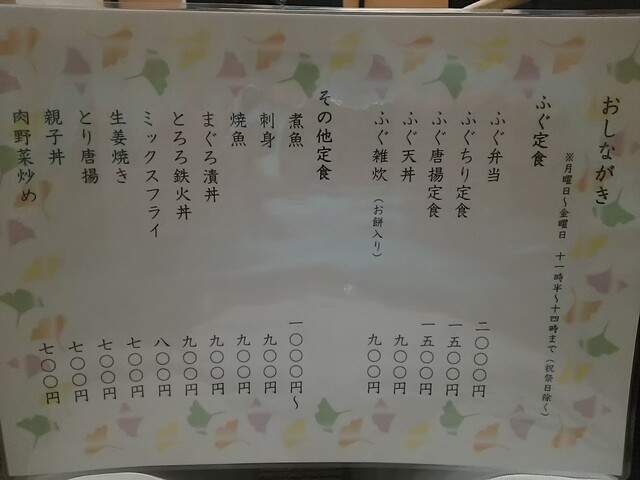 おしながき
※月曜日〜金曜日 十一時半〜十四時まで（祝祭日除く）
ふぐ定食
ふぐ弁当 二〇〇〇円
ふぐちり定食 一五〇〇円
ふぐ唐揚定食 一五〇〇円
ふぐ天丼 九〇〇円
ふぐ雑炊（お餅入り） 九〇〇円
その他定食
煮魚 一〇〇〇円〜
刺身 九〇〇円
焼魚 九〇〇円
まぐろ漬丼 九〇〇円
とろろ鉄火丼 九〇〇円
ミックスフライ 八〇〇円
生姜焼き 七〇〇円
とり唐揚 七〇〇円
親子丼 七〇〇円
肉野菜炒め 七〇〇円